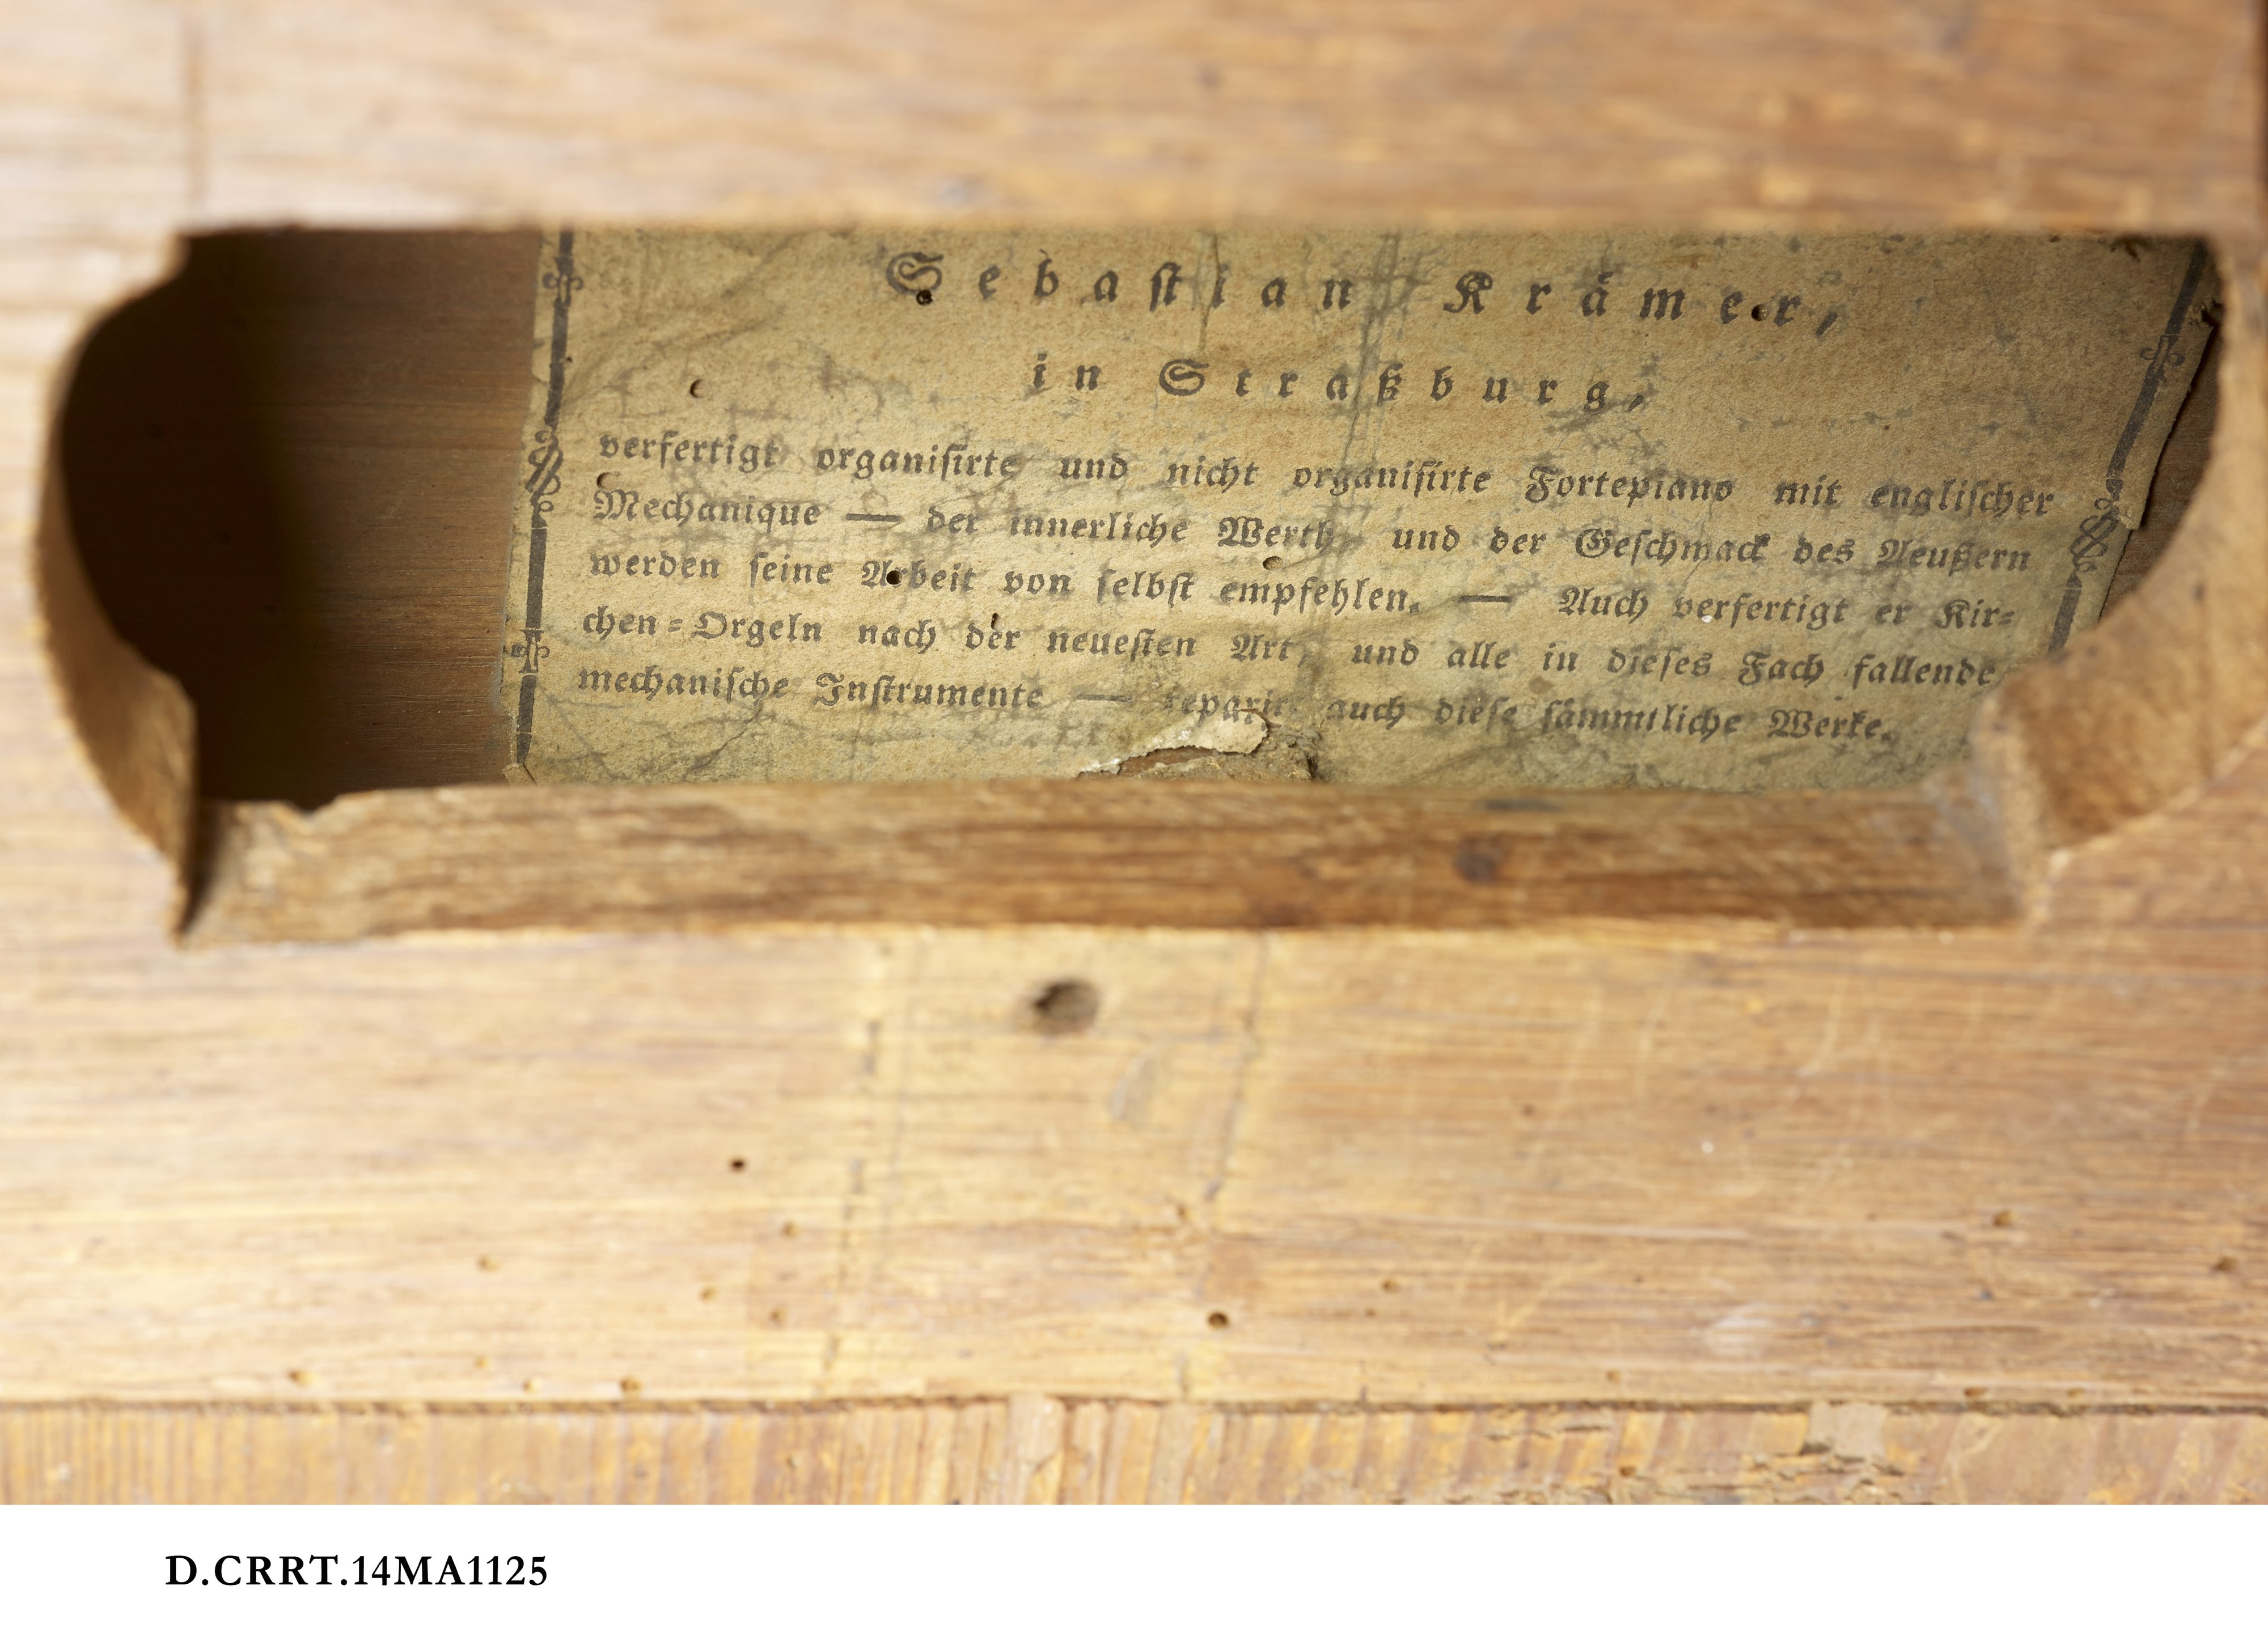 Sebaſtian Krämer,
in Straßburg,
verfertigt organiſirte und nicht organiſirte Fortepiano mit engliſcher
Mechanique — der innerliche Werth und der Geſchmack des Aeußern
werden ſeine Arbeit von ſelbſt empfehlen. — Auch verfertigt er Kir-
chen-Orgeln nach der neueſten Art, und alle in dieſes Fach fallende
mechaniſche Inſtrumente — reparirt auch dieſe ſämmtliche Werke.
D.CRRT.14MA1125